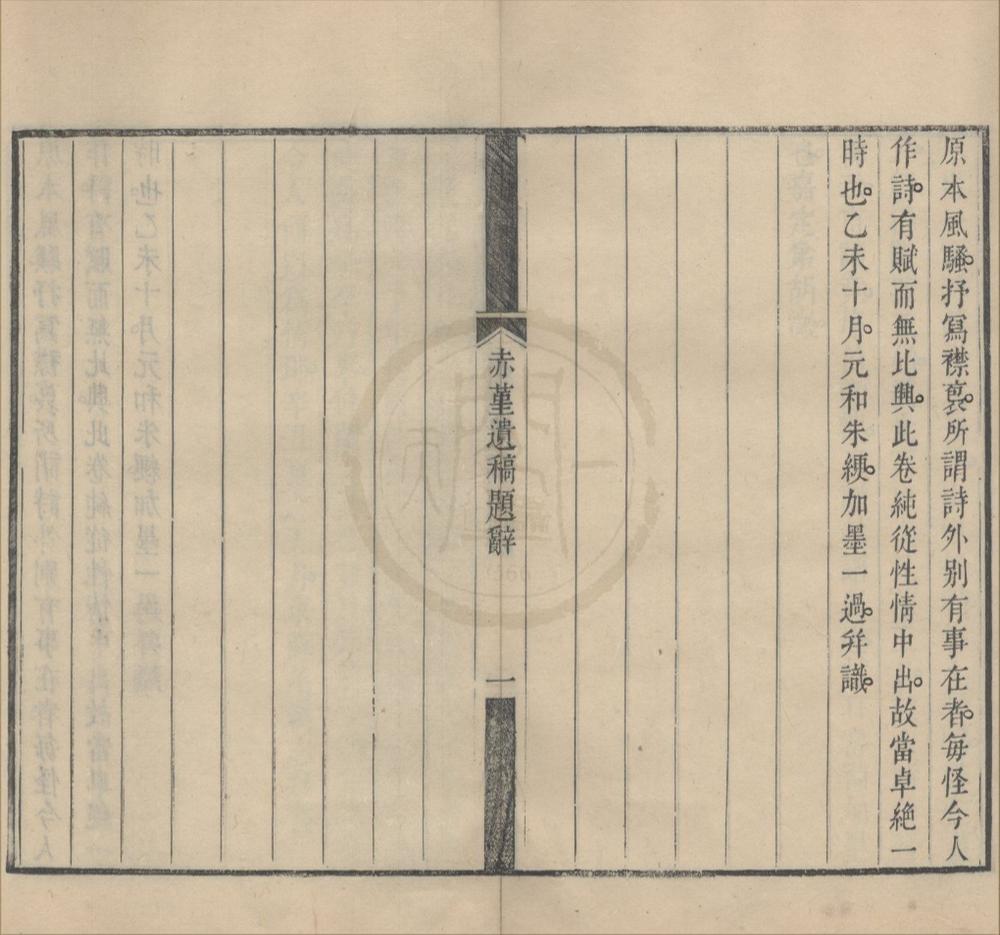 原本風騷。抒寫襟裒。所謂詩外别有事在者。每怪今人
作詩。有賦而無比興。此卷純從性情中出。故當卓絶一
時也。乙未十月。元和朱綆。加墨一過。并識。
赤堇遺稿題辭
一